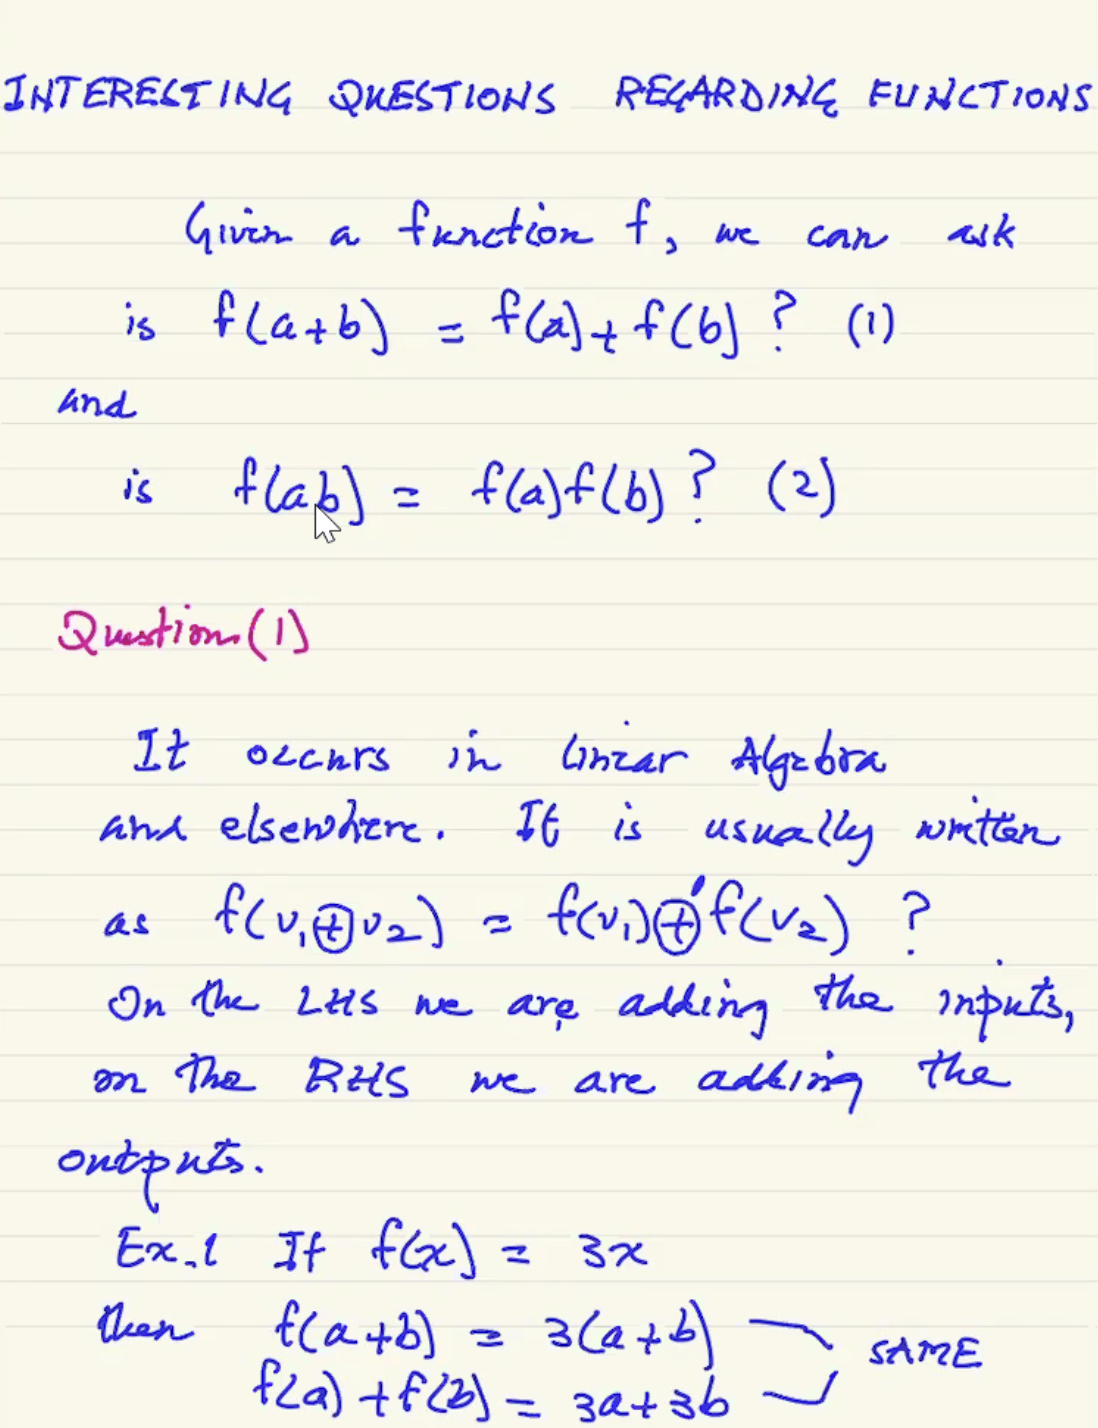 INTERESTING QUESTIONS REGARDING FUNCTIONS
Given a function f, we can ask
is f(a+b) = f(a)+f(b)? (1)
and
is f(ab) = f(a)f(b)? (2)
Question(1)
It occurs in Linear Algebra
and elsewhere. It is usually written
as f(v₁⊕v₂) = f(v₁)⊕'f(v₂) ?
On the LHS we are adding the inputs,
on the RHS we are adding the
outputs.
Ex.1 If f(x) = 3x
then f(a+b) = 3(a+b)
SAME
f(a)+f(b) = 3a+3b